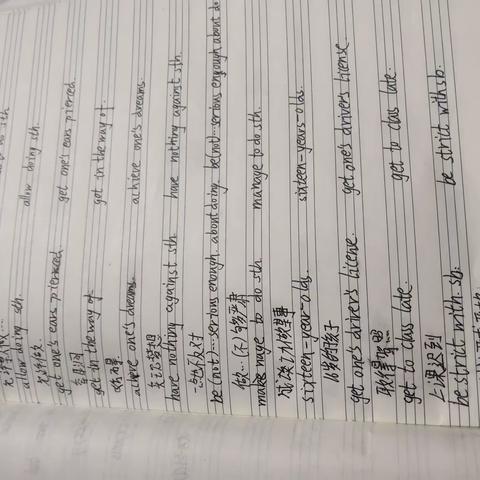 allow doing sth. allow doing sth.
get one's ears pierced. get one's ears pierced.
get in the way of. get in the way of.
achieve one's dreams. achieve one's dreams.
have nothing against sth. have nothing against sth.
一点儿不反对
be (not)... serious enough. about doing. be(not)... serious enough about do
manage to do sth. manage to do sth.
sixteen-year-olds. sixteen-years-olds.
16岁的孩子
get one's driver's license. get one's driver's license.
取得驾照
get to class late. get to class late.
上课迟到
be strict with sb. be strict with sb.